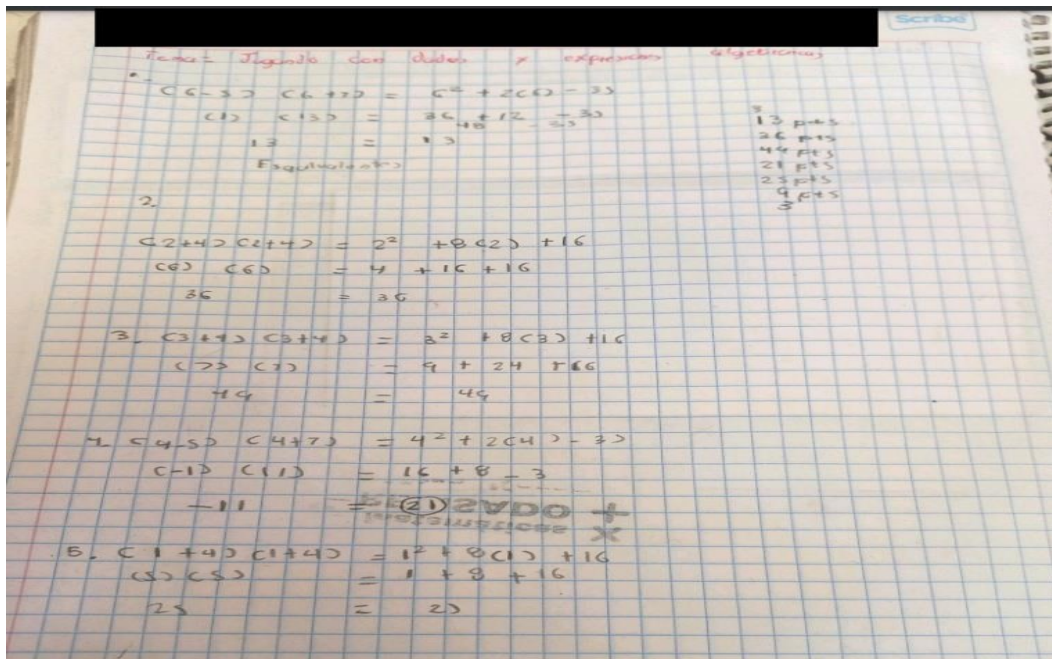 Scribe
Tema= Jugando con dados y expresiones algebraicas
(6-5) (6+7) = 6² + 2(6) - 35
(1) (13) = 36 + 12 - 35
48 - 35
13 = 13
Esquivalentes
13 pts
36 pts
49 pts
21 pts
25 pts
9 pts
3
2.
(2+4) (2+4) = 2² +8(2) +16
(6) (6) = 4 + 16 + 16
36 = 36
3. (3+4) (3+4) = 3² +8(3) +16
(7) (7) = 9 + 24 +16
49 = 49
4. (4-5) (4+7) = 4² + 2(4) - 35
(-1) (11) = 16 + 8 - 3
-11 = 21
REVISADO
Matemáticas
5. (1 +4) (1+4) = 1² + 8(1) +16
(5) (5) = 1 + 8 + 16
25 = 25